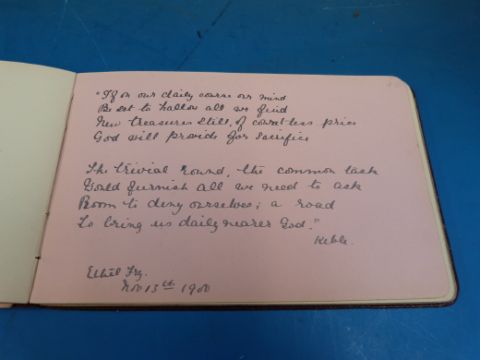 "If on our daily course our mind
Be set to hallow all we find
New treasures still, of countless price
God will provide for sacrifice

The trivial round, the common task
Would furnish all we need to ask
Room to deny ourselves; a road
To bring us daily nearer God."
Keble.
Ethel Fry.
Nov 13th 1900